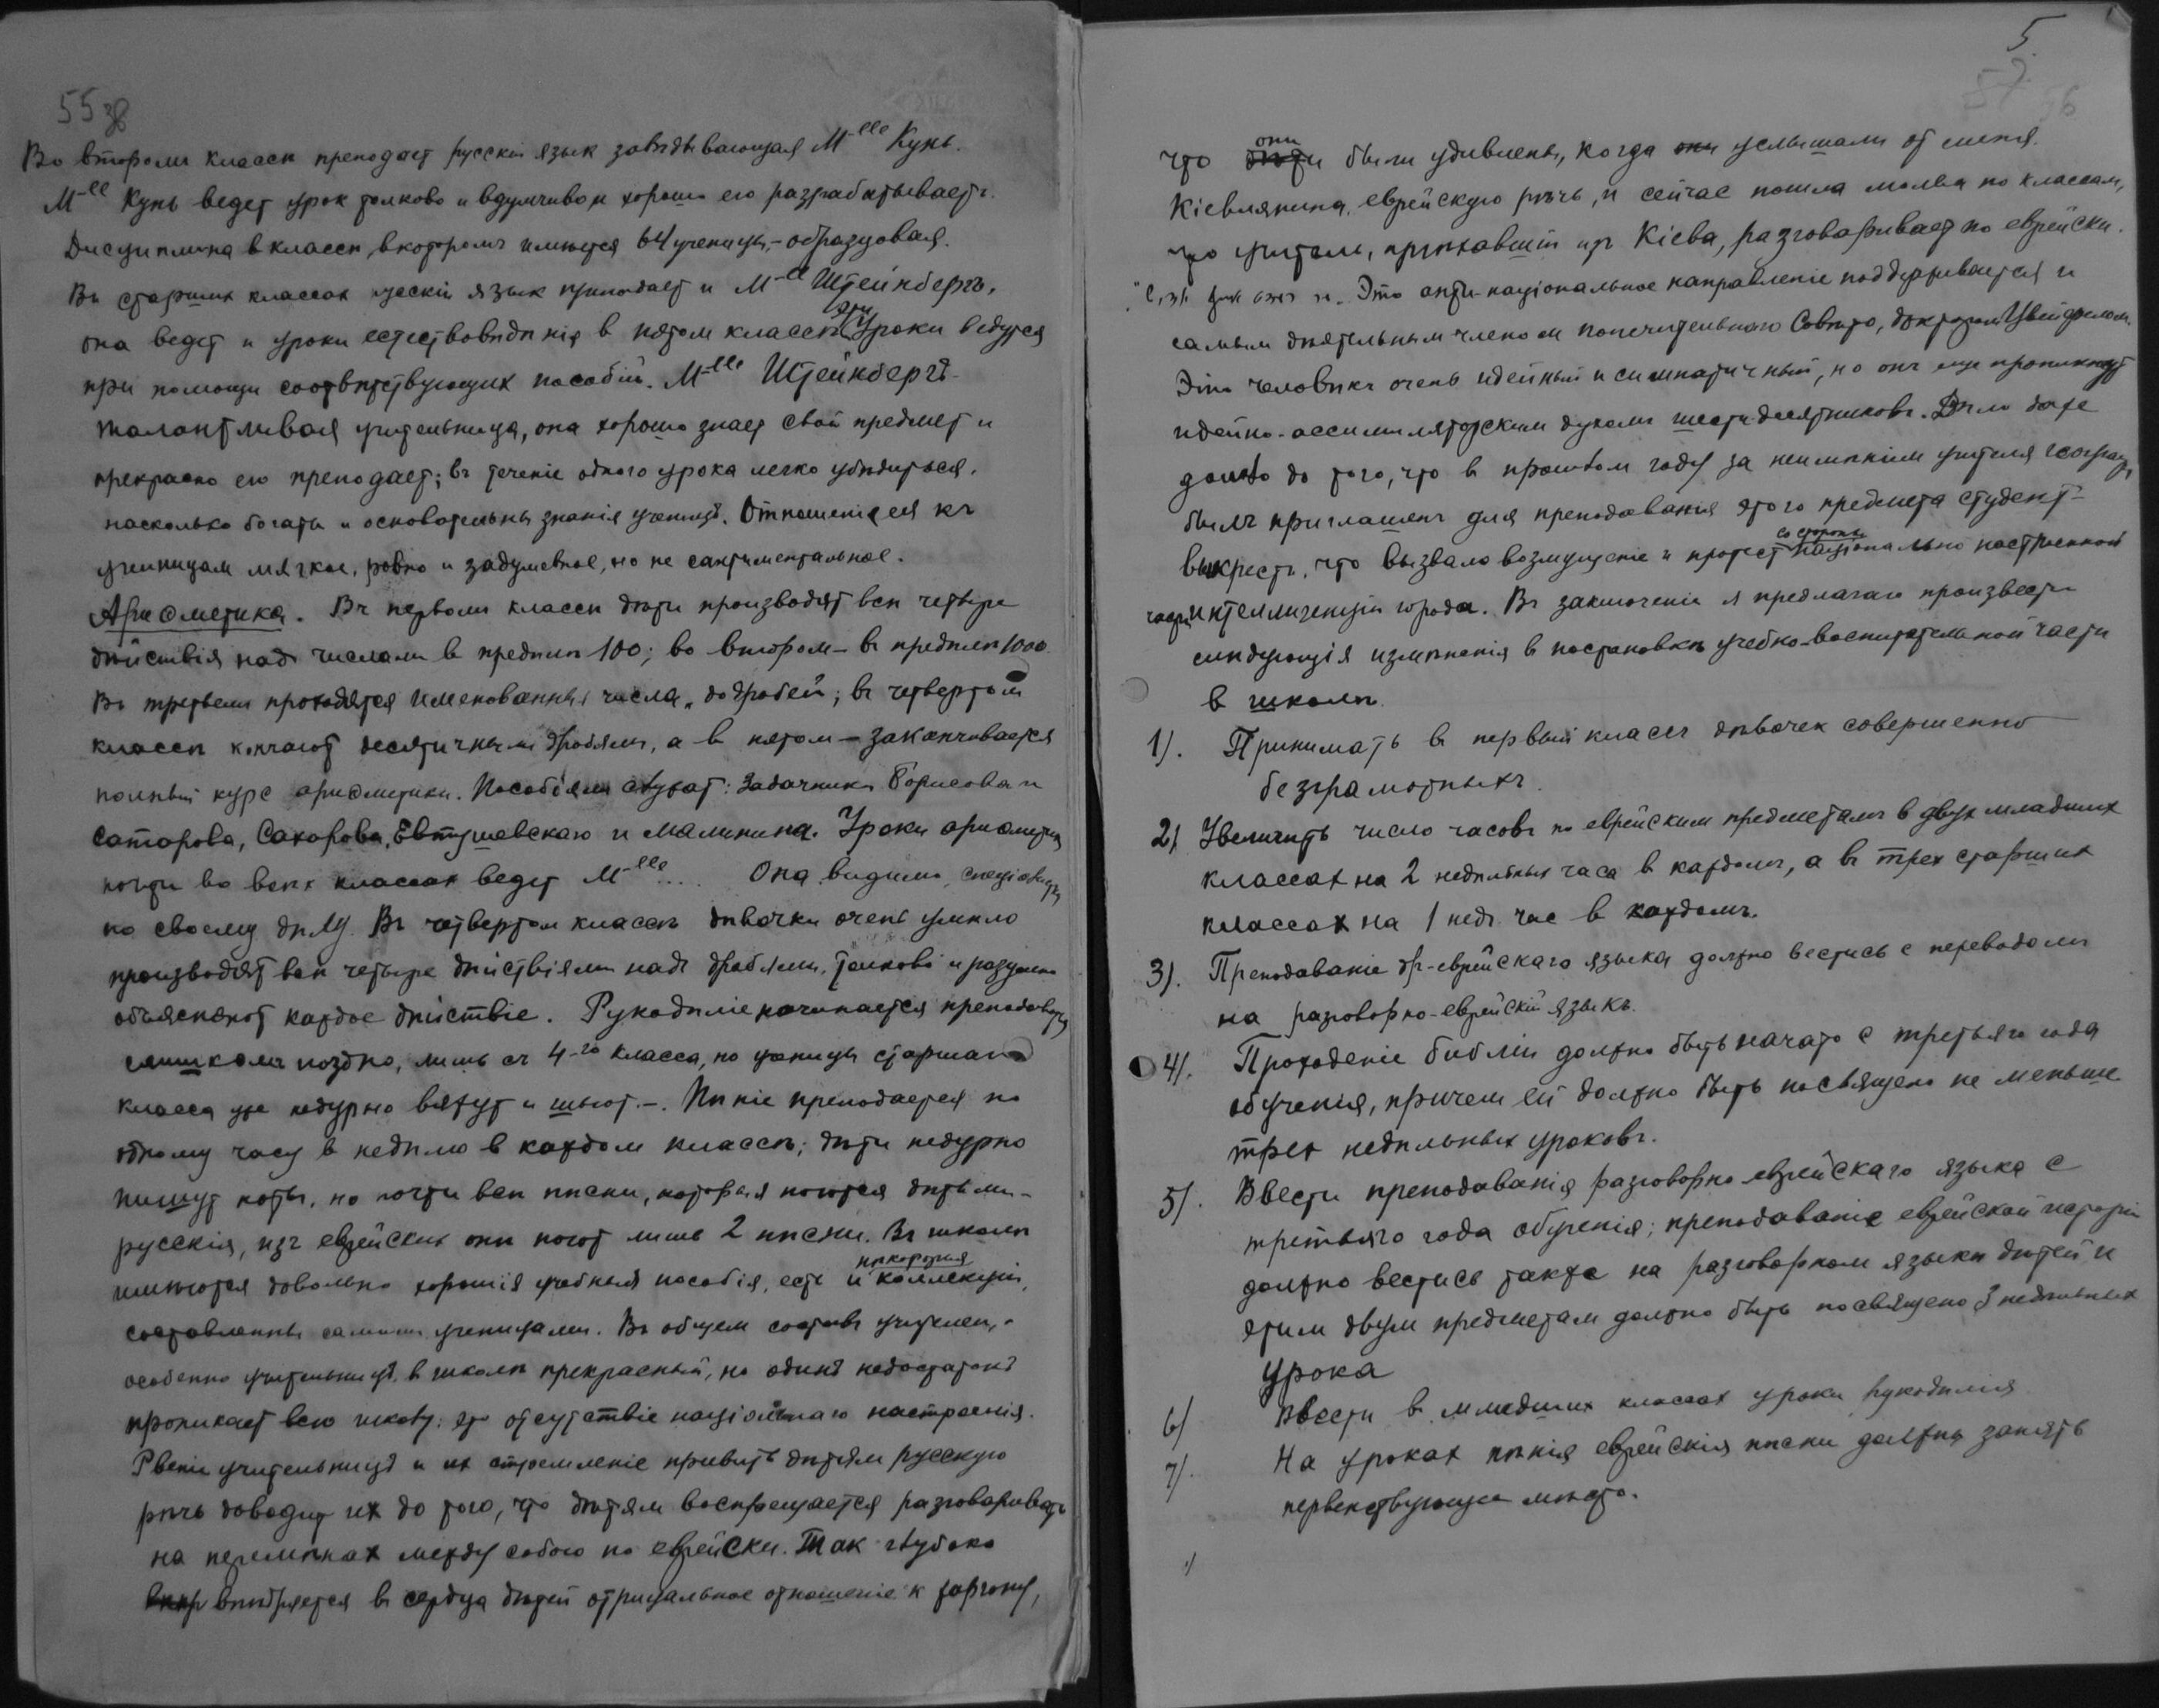 55 об
Во второмъ классѣ преподает русскій язык завѣдывающая M-lle Кунь.
M-lle Кунь ведет урок толково и вдумчиво и хорошо его разрабатываетъ.
Дисциплина в классѣ, в которомъ имѣется 64 ученицы, – образцовая.
Въ старших классах русскій язык преподает и M-lle Штейнбергъ,
она ведет и уроки естествовѣдѣнія в пятом классѣ. Эти Уроки ведутся
при помощи соотвѣтствующих пособій. M-lle Штейнбергъ –
талантливая учительница, она хорошо знает свой предмет и
прекрасно его преподает; въ теченіе одного урока легко убѣдиться,
насколько богаты и основательны знанія ученицъ. Отношеніе ея къ
ученицам мягкое, ровно и задушевное, но не сантиментальное.
Ариѳметика. Въ первомъ классѣ дѣти производят всѣ четыре
дѣйствія надъ числами в предѣлѣ 100; во втором – въ предѣлѣ 1000.
Въ третьем проходятся именованныя числа, до дробей; въ четвертом
классѣ кончают десятичными дробями, а в пятом – заканчивается
полный курс ариѳметики. Пособіями служат: Задачники Борисова и
Саторова, Сахарова, Евтушевскаго и Малинина. Уроки ариѳметики
почти во всѣх классах ведет M-lle .... Она, видимо,
по своему дѣлу. Въ четвертом классѣ дѣвочки очень умѣло
производят всѣ четыре дѣйствіями надъ дробями, толково и разумно
объясняют каждое дѣйствіе. Рукодѣліе начинается преподаваться
слишкомъ поздно, лишь съ 4-го класса, но ученицы старшаго
класса уже недурно вяжут и шьют. –. Пѣніе преподается по
одному часу в недѣлю в каждом классѣ; дѣти недурно
пишут ноты, но почти всѣ пѣсни, которыя поются дѣтьми –
русскія, изъ еврейских они поют лишь 2 пѣсни. Въ школѣ
имѣются довольно хорошія учебныя пособія, есть и нѣкоторыя коллекціи,
составленны самими ученицами. Въ общем составъ учителей,
особенно учительницъ, в школѣ прекрасный, но одинъ недостатокъ
проникает всю школу: это отсутствіе національнаго настроенія.
Рвеніе учительницъ и их стремленіе привить дѣтям русскую
рѣчь доводит их до того, что дѣтям воспрещается разговаривать
на перемѣнах между собою по еврейски. Так глубоко
внѣдряется въ сердца дѣтей отрицальное отношеніе к жаргону,
5.
57.
56
что они были удивлены, когда они услышали от меня.
Кіевлянина, еврейскую рѣчь, и сейчас пошла молва по классам,
что учитель, пріѣхавшій изъ Кіева, разговаривает по еврейски.
Это анти-національное направленіе поддерживается и
самым дѣятельным членом попечительнаго Совѣта, доктором Цвейфелом.
Это человѣкъ очень идейный и симпатичный, но онъ еще проникнут
идейно-ассимиляторским духомъ шестидесятников. Дѣло даже
дошло до того, что в прошлом году за неимѣніем учителя географіи
былъ приглашенъ для преподаванія этого предмета студент-
выкрестъ, что вызвало возмущеніе и протест со стороны національно настроенной
части интеллигенціи города. Въ заключеніе я предлагаю произвести
слѣдующія измѣненія в постановкѣ учебно-воспитательной части
в школѣ.
1). Принимать въ первый классъ дѣвочек совершенно
безграмотныхъ.
2) Увеличить число часовъ по еврейским предметамъ в двух младших
классах на 2 недѣльных часа в каждомъ, а въ трех старших
классах на 1 нед. час в каждомъ.
3). Преподаваніе др-еврейскаго языка должно вестись с переводомъ
на разговорно-еврейскій языкъ.
4). Прохожденіе библіи должно быть начато с третьяго года
обученія, причем ей должно быть посвящено не меньше
трех недѣльных уроковъ.
5). Ввести преподаванія разговорно-еврейскаго языка с
третьяго года обученія; преподаваніе еврейской исторіи
должно вестись также на разговорном языкѣ дѣтей и
этим двум предметам должно быть посвящено 3 недѣльных
урока
6) Ввести въ младших классах уроки рукодѣлія
7). На уроках пѣнія еврейскія пѣсни должны занять
первенствующее мѣсто.